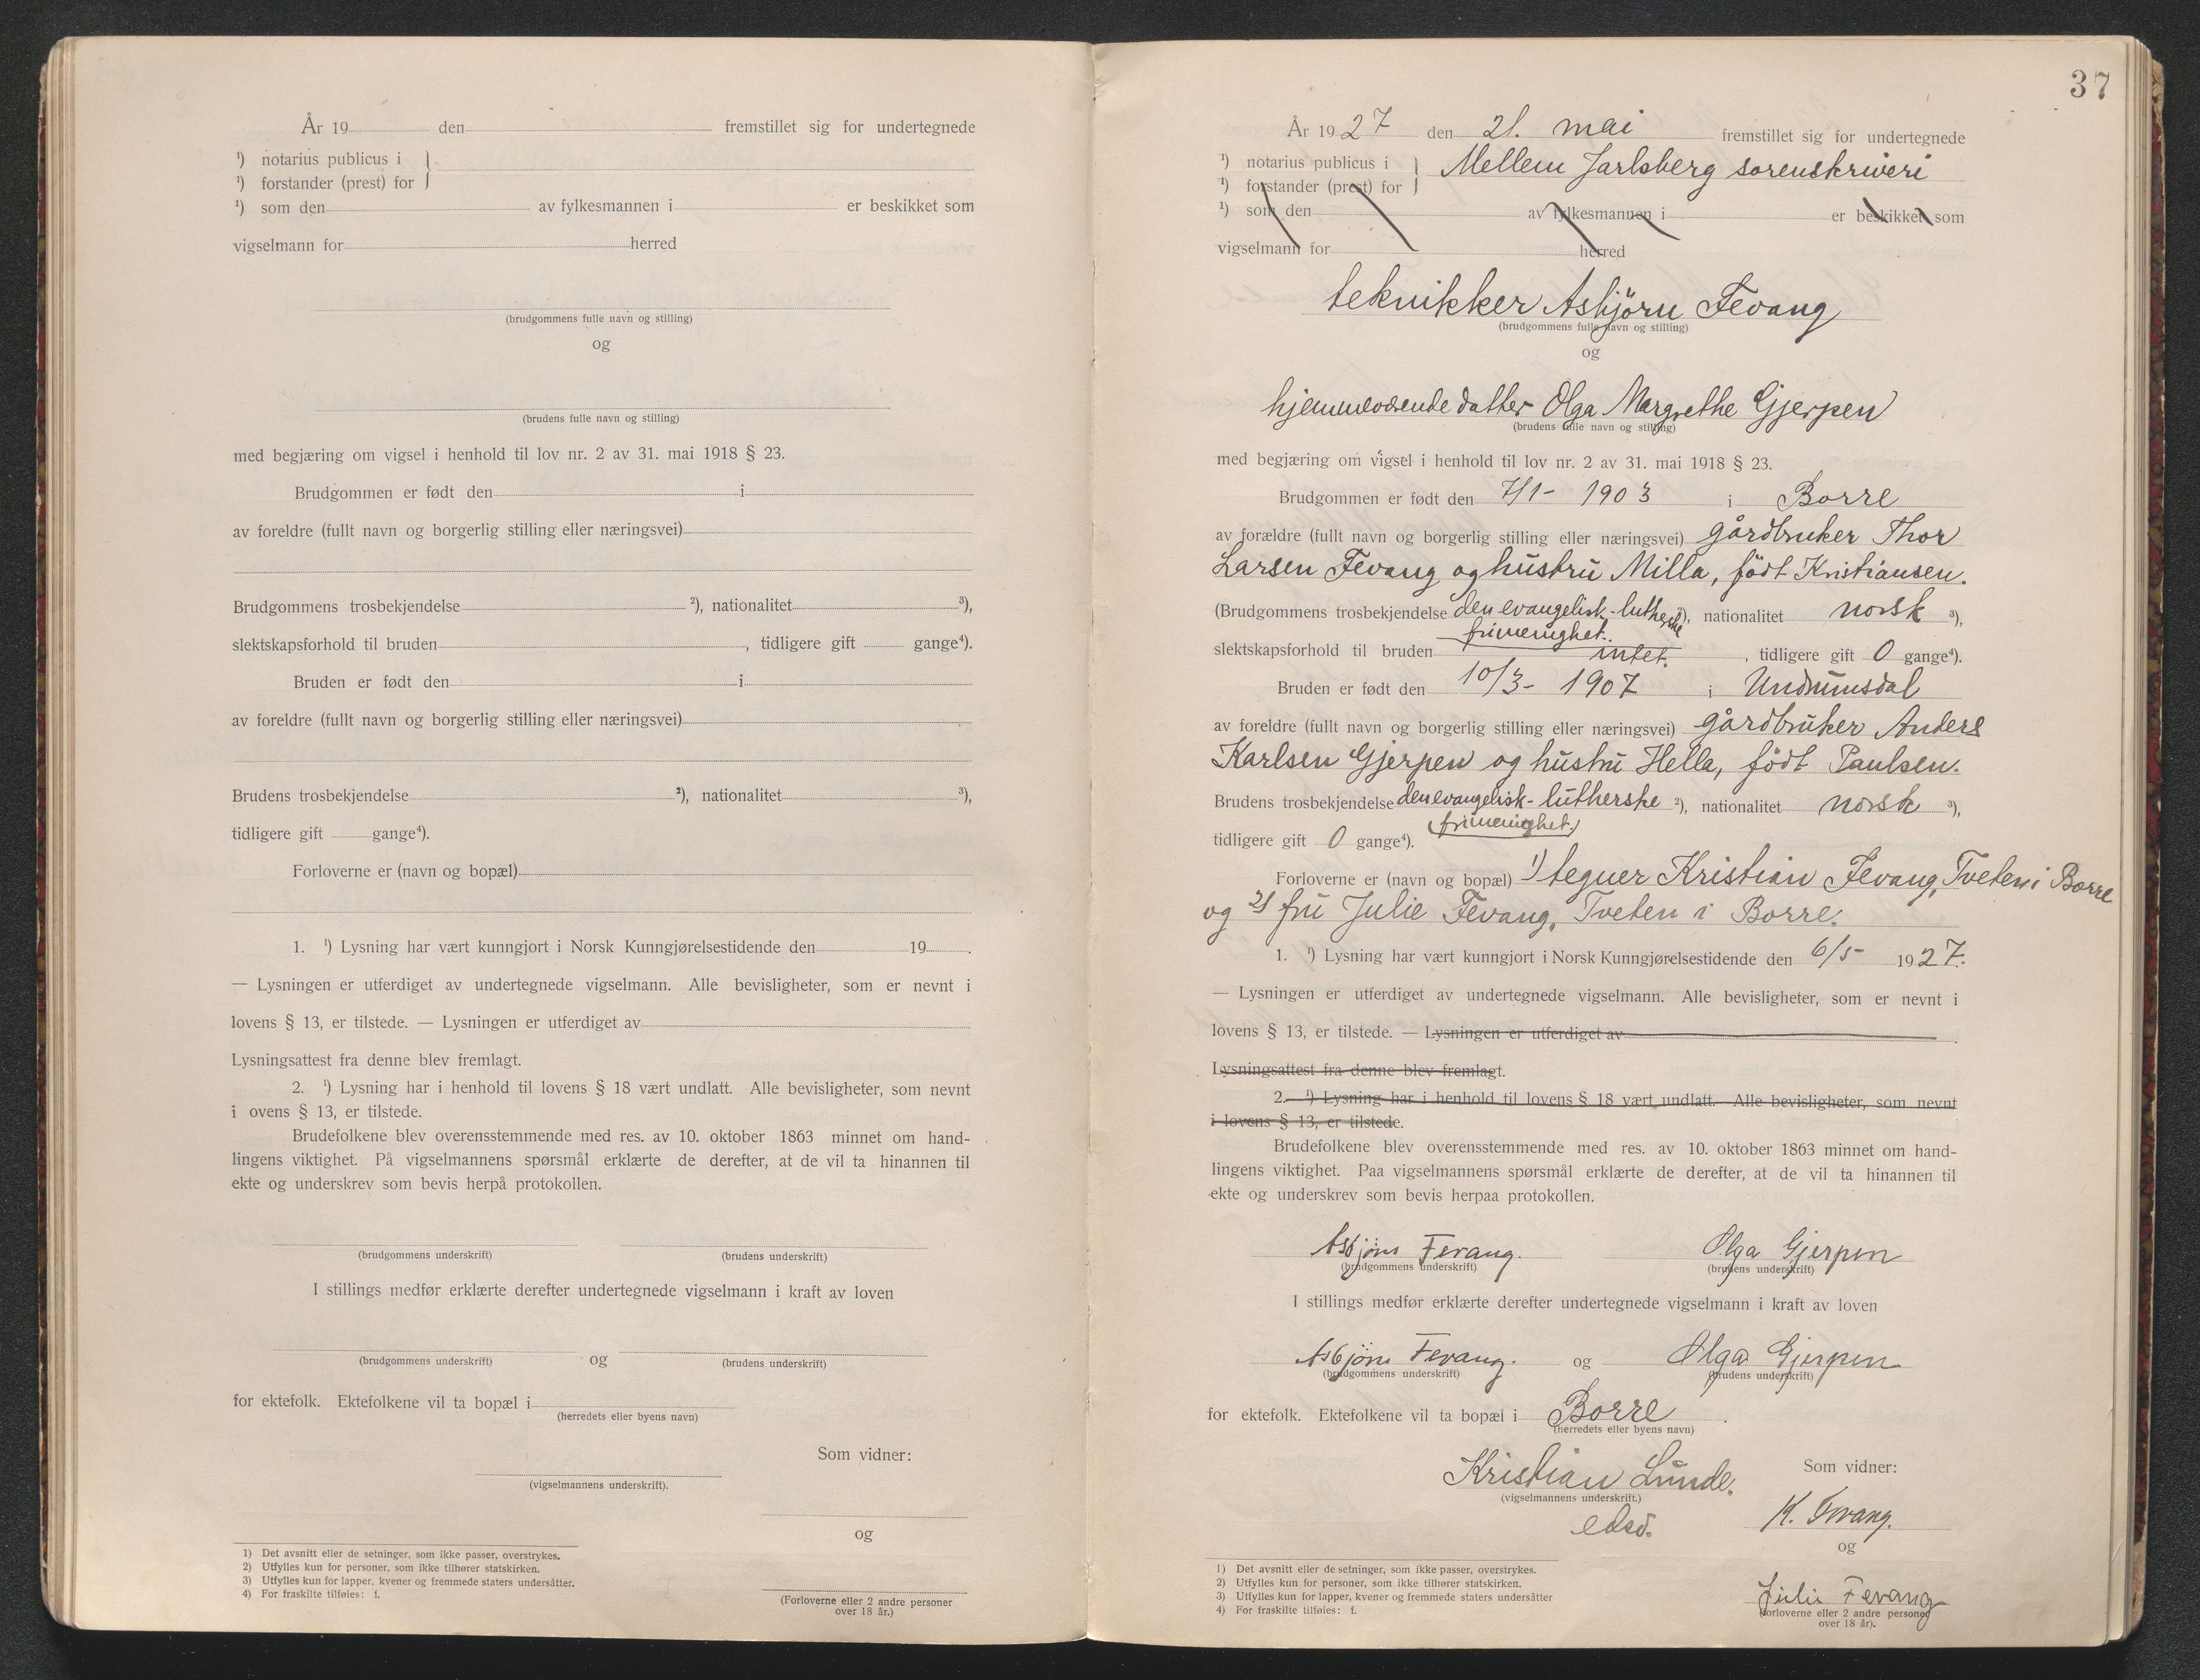 År 19 den fremstillet sig for undertegnede
¹) notarius publicus i
¹) forstander (prest) for
¹) som den av fylkesmannen i er beskikket som
vigselmann for herred
(brudgommens fulle navn og stilling)
og
(brudens fulle navn og stilling)
med begjæring om vigsel i henhold til lov nr. 2 av 31. mai 1918 § 23.
Brudgommen er født den i
av foreldre (fullt navn og borgerlig stilling eller næringsvei)
Brudgommens trosbekjendelse ²), nationalitet ³),
slektskapsforhold til bruden , tidligere gift gange⁴).
Bruden er født den i
av foreldre (fullt navn og borgerlig stilling eller næringsvei)
Brudens trosbekjendelse ²), nationalitet ³),
tidligere gift gange⁴).
Forloverne er (navn og bopæl)
1. ¹) Lysning har vært kunngjort i Norsk Kunngjørelsestidende den 19 .
— Lysningen er utferdiget av undertegnede vigselmann. Alle bevisligheter, som er nevnt i
lovens § 13, er tilstede. — Lysningen er utferdiget av
Lysningsattest fra denne blev fremlagt.
2. ¹) Lysning har i henhold til lovens § 18 vært undlatt. Alle bevisligheter, som nevnt
i ovens § 13, er tilstede.
Brudefolkene blev overensstemmende med res. av 10. oktober 1863 minnet om hand-
lingens viktighet. På vigselmannens spørsmål erklærte de derefter, at de vil ta hinannen til
ekte og underskrev som bevis herpå protokollen.
(brudgommens underskrift) (brudens underskrift)
I stillings medfør erklærte derefter undertegnede vigselmann i kraft av loven
og
(brudgommens underskrift) (brudens underskrift)
for ektefolk. Ektefolkene vil ta bopæl i
(herredets eller byens navn)
Som vidner:
(vigselmannens underskrift).
og
1) Det avsnitt eller de setninger, som ikke passer, overstrykes.
2) Utfylles kun for personer, som ikke tilhører statskirken.
3) Utfylles kun for lapper, kvener og fremmede staters undersåtter.
4) For fraskilte tilføies: f.
(Forloverne eller 2 andre personer
over 18 år.)
37
År 1927 den 21. mai fremstillet sig for undertegnede
¹) notarius publicus i Mellem Jarlsberg sorenskriveri
¹) forstander (prest) for
¹) som den av fylkesmannen i er beskikket som
vigselmann for herred
teknikker Asbjörn Fevang
(brudgommens fulle navn og stilling)
og
hjemmeværende datter Olga Margrethe Gjerpen
(brudens fulle navn og stilling)
med begjæring om vigsel i henhold til lov nr. 2 av 31. mai 1918 § 23.
Brudgommen er født den 7/1- 1903 i Borre
av forældre (fullt navn og borgerlig stilling eller næringsvei) gårdbruker Thor
Larsen Fevang og hustru Milla, födt Kristiansen.
(Brudgommens trosbekjendelse den evangelisk-lutherske ²), nationalitet norsk ³),
frimenighet.
slektskapsforhold til bruden intet. , tidligere gift 0 gange⁴).
Bruden er født den 10/3- 1907 i Undrumsdal
av foreldre (fullt navn og borgerlig stilling eller næringsvei) gårdbruker Anders
Karlsen Gjerpen og hustru Hella, födt Paulsen.
Brudens trosbekjendelse den evangelisk-lutherske ²), nationalitet norsk ³),
frimenighet.
tidligere gift 0 gange⁴).
Forloverne er (navn og bopæl) 1) tegner Kristian Fevang, Tveten i Borre
og 2) fru Julie Fevang, Tveten i Borre.
1. ¹) Lysning har vært kunngjort i Norsk Kunngjørelsestidende den 6/5- 1927.
— Lysningen er utferdiget av undertegnede vigselmann. Alle bevisligheter, som er nevnt i
lovens § 13, er tilstede. — Lysningen er utferdiget av
Lysningsattest fra denne blev fremlagt.
2. ¹) Lysning har i henhold til lovens § 18 vært undlatt. Alle bevisligheter, som nevnt
i lovens § 13, er tilstede.
Brudefolkene blev overensstemmende med res. av 10. oktober 1863 minnet om hand-
lingens viktighet. Paa vigselmannens spørsmål erklærte de derefter, at de vil ta hinannen til
ekte og underskrev som bevis herpaa protokollen.
Asbjörn Fevang. Olga Gjerpen
(brudgommens underskrift) (brudens underskrift)
I stillings medfør erklærte derefter undertegnede vigselmann i kraft av loven
Asbjörn Fevang. og Olga Gjerpen
(brudgommens underskrift) (brudens underskrift)
for ektefolk. Ektefolkene vil ta bopæl i Borre .
(herredets eller byens navn)
Kristian Lunde. Som vidner:
(vigselmannens underskrift.)
edsv. K. Fevang.
og
1) Det avsnitt eller de setninger, som ikke passer, overstrykes.
2) Utfylles kun for personer, som ikke tilhører statskirken.
3) Utfylles kun for lapper, kvener og fremmede staters undersåtter
4) For fraskilte tilføies: f.
Julie Fevang
(forloverne eller 2 andre personer
over 18 år).